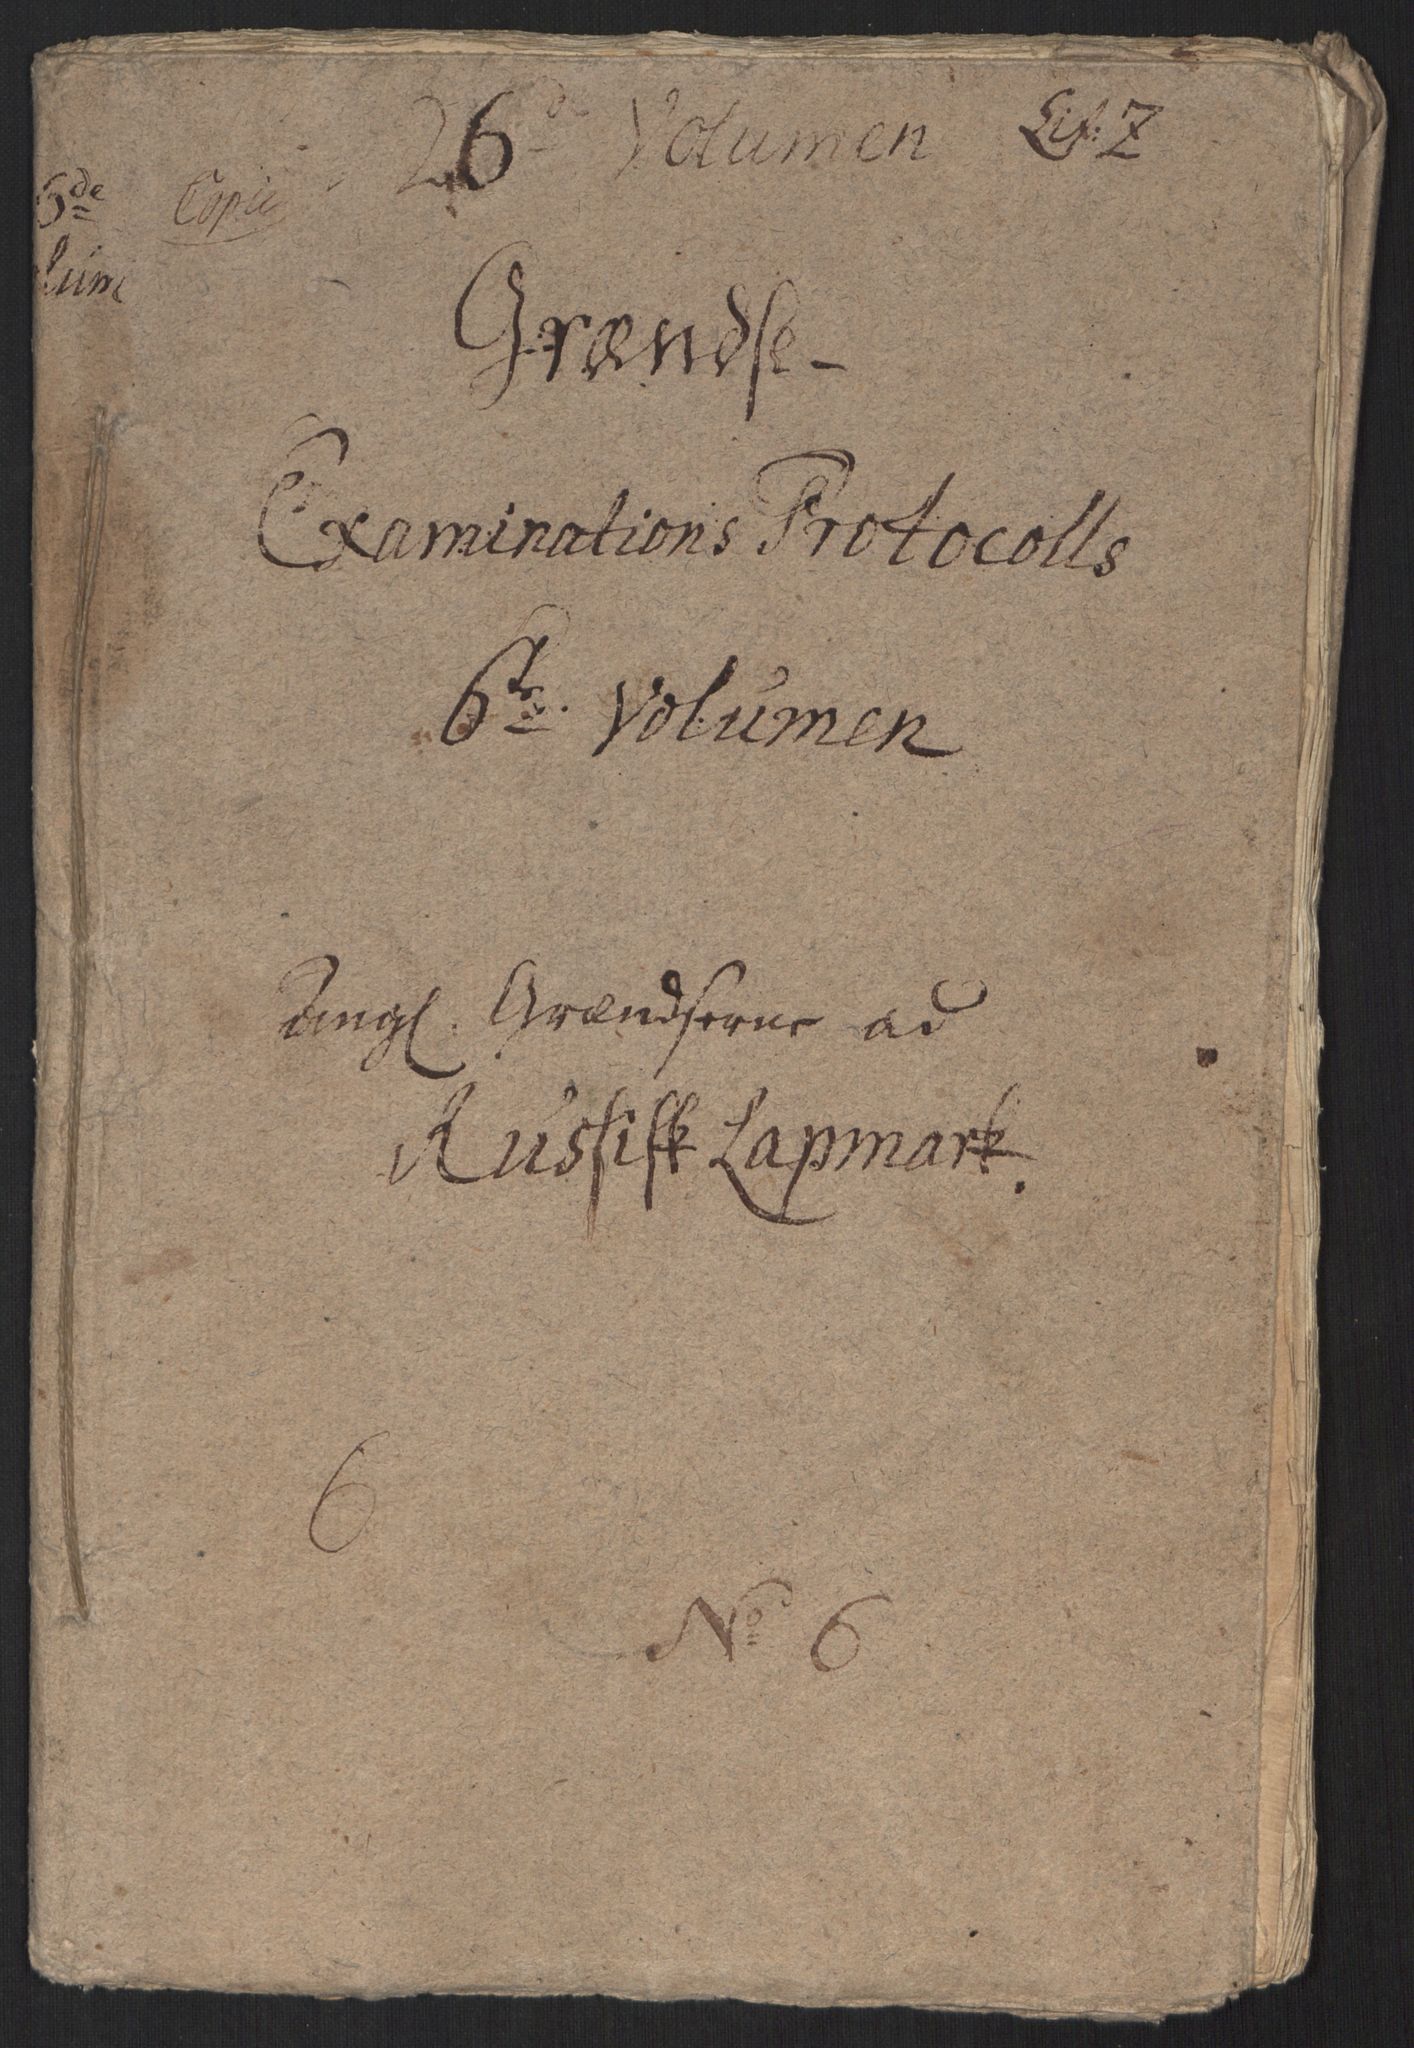 26de Volumen Lit: Z
6de
Copie
lum
Grændse-
Examinations Protocolls
6te Volumen
Angl. Grændserne ad
Russisk Lapmark.
6
No 6